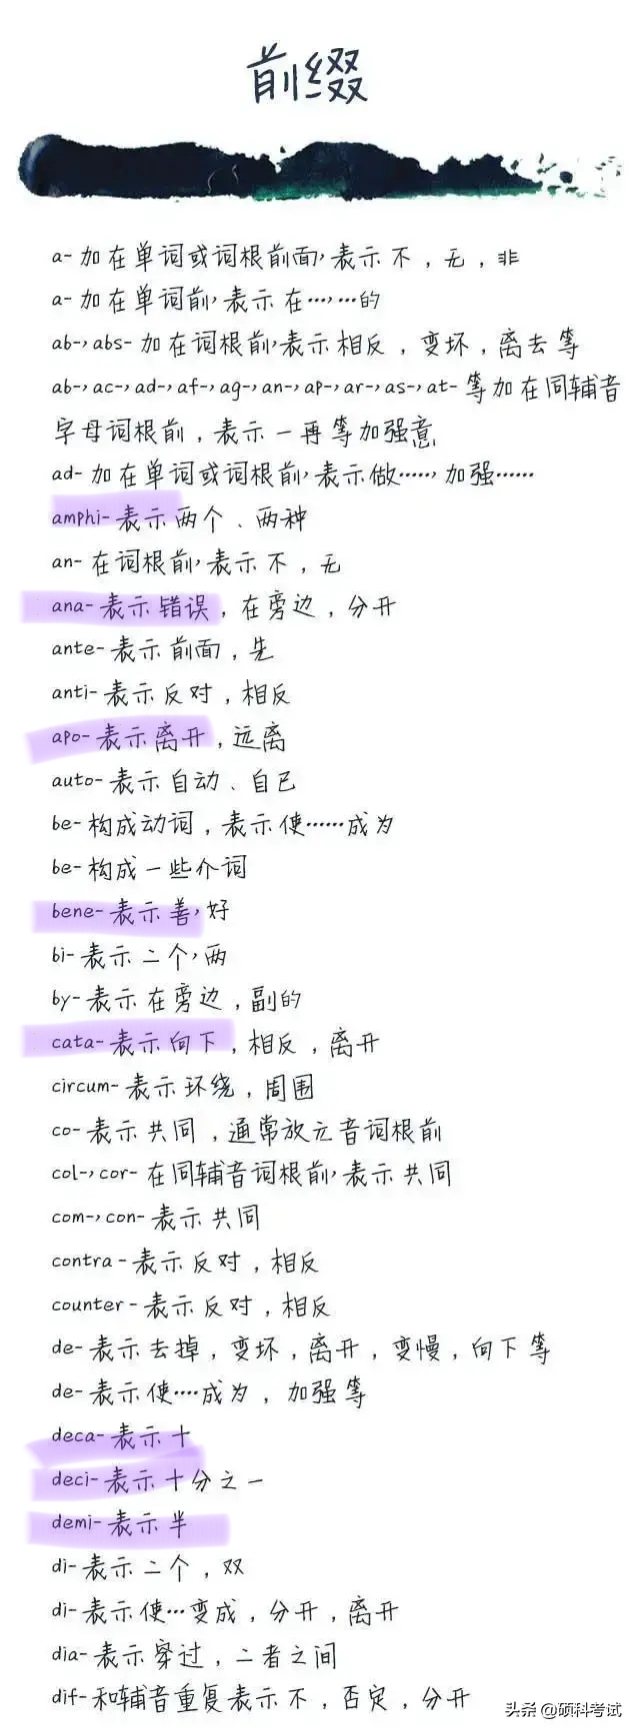 前缀
a- 加在单词或词根前面,表示不，无，非
a- 加在单词前,表示在…,…的
ab-,abs- 加在词根前,表示相反，变坏，离去等
ab-,ac-,ad-,af-,ag-,an-,ap-,ar-,as-,at- 等加在同辅音
字母词根前，表示一再等加强意
ad- 加在单词或词根前,表示做……,加强……
amphi-表示两个、两种
an- 在词根前,表示不，无
ana-表示错误，在旁边，分开
ante-表示前面，先
anti-表示反对，相反
apo-表示离开，远离
auto-表示自动、自己
be-构成动词，表示使……成为
be-构成一些介词
bene-表示善,好
bi-表示二个,两
by-表示在旁边，副的
cata-表示向下，相反，离开
circum-表示环绕，周围
co-表示共同，通常放元音词根前
col-,cor-在同辅音词根前,表示共同
com-,con-表示共同
contra-表示反对，相反
counter-表示反对，相反
de-表示去掉，变坏，离开，变慢，向下等
de-表示使….成为，加强等
deca-表示十
deci-表示十分之一
demi-表示半
di-表示二个，双
di-表示使…变成，分开，离开
dia-表示穿过，二者之间
dif-和辅音重复表示不，否定，分开
头条 @硕科考试